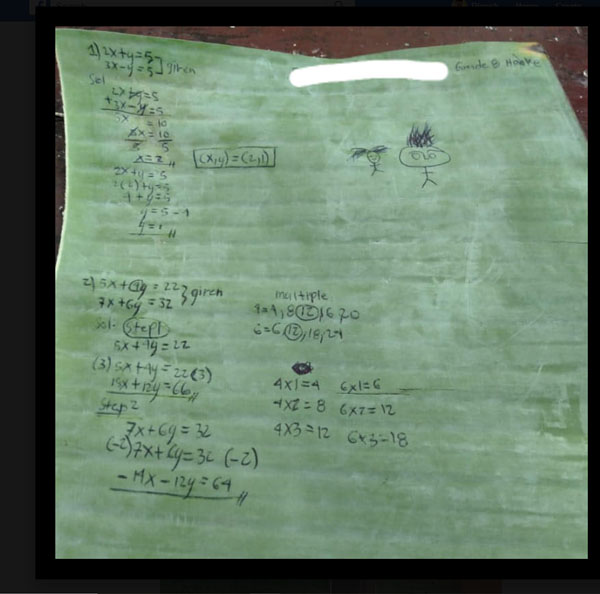 1) 2x+y=5
3x-y=5 ] given
Grade 8
Sol
2x+y=5
+3x-y=5
5x = 10
5x = 10
5 5
x=2 //
(x,y)=(2,1)
2x+y=5
2(2)+y=5
4+y=5
y=5-4
y=1 //
2) 5x+4y=22 } given
7x+6y=32
multiple
4=4,8,12,16,20
6=6,12,18,24
Sol. Step1
5x+4y=22
(3)5x+4y=22(3)
15x+12y=66 //
4x1=4 6x1=6
Step 2
4x2=8 6x2=12
7x+6y=32
4x3=12 6x3=18
(-2)7x+6y=32(-2)
-14x-12y=64 //